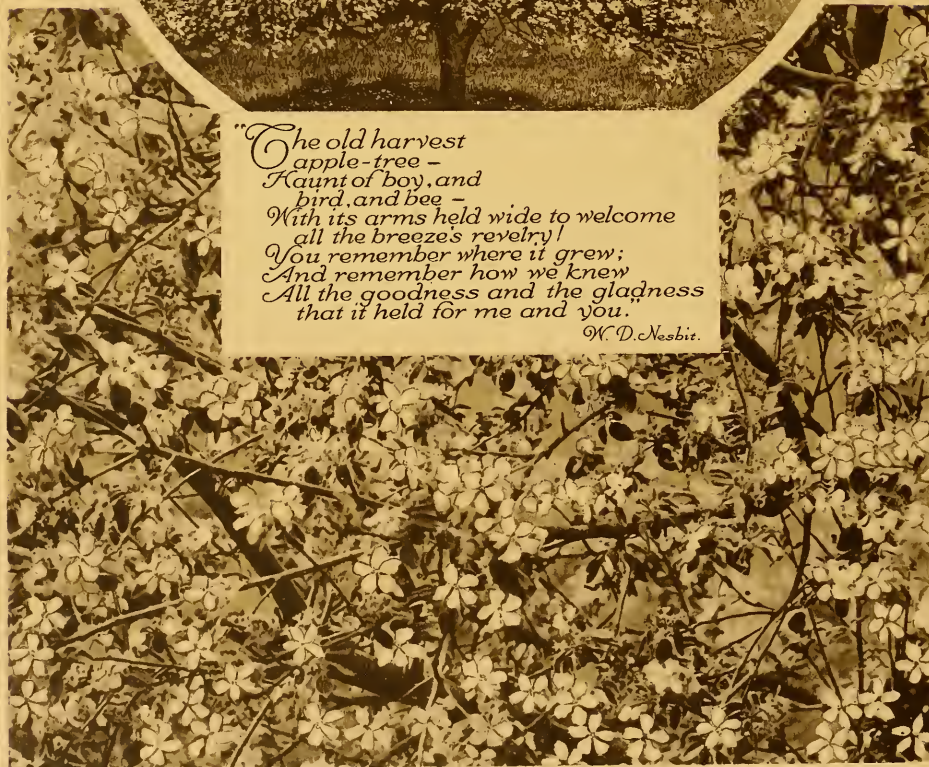 "The old harvest
apple-tree –
Haunt of boy, and
bird, and bee –
With its arms held wide to welcome
all the breeze's revelry!
You remember where it grew;
And remember how we knew
All the goodness and the gladness
that it held for me and you."
W. D. Nesbit.